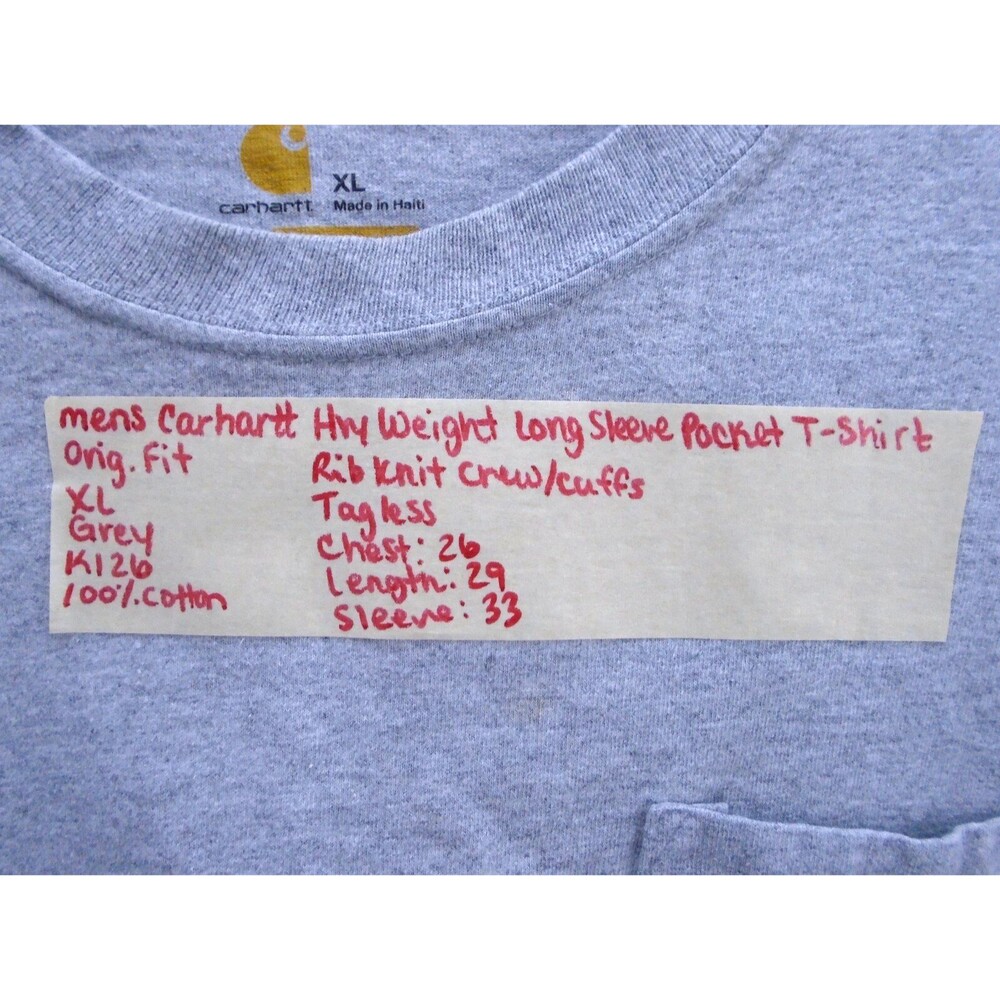 XL
carhartt Made in Haiti
mens Carhartt Hvy Weight Long Sleeve Pocket T-Shirt
Orig. Fit
XL
Grey
K126
100% Cotton
Rib Knit Crew/cuffs
Tagless
Chest: 26
Length: 29
Sleeve: 33